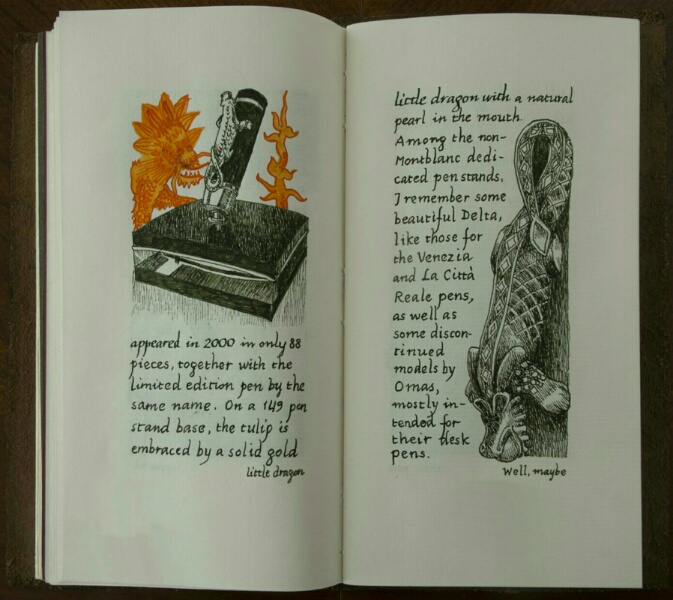 appeared in 2000 in only 88
pieces, together with the
limited edition pen by the
same name. On a 149 pen
stand base, the tulip is
embraced by a solid gold
little dragon
little dragon with a natural
pearl in the mouth.
Among the non-
Montblanc dedi-
cated penstands,
I remember some
beautiful Delta,
like those for
the Venezia
and La Città
Reale pens,
as well as
some discon-
tinued
models by
Omas,
mostly in-
tended for
their desk
pens.
Well, maybe